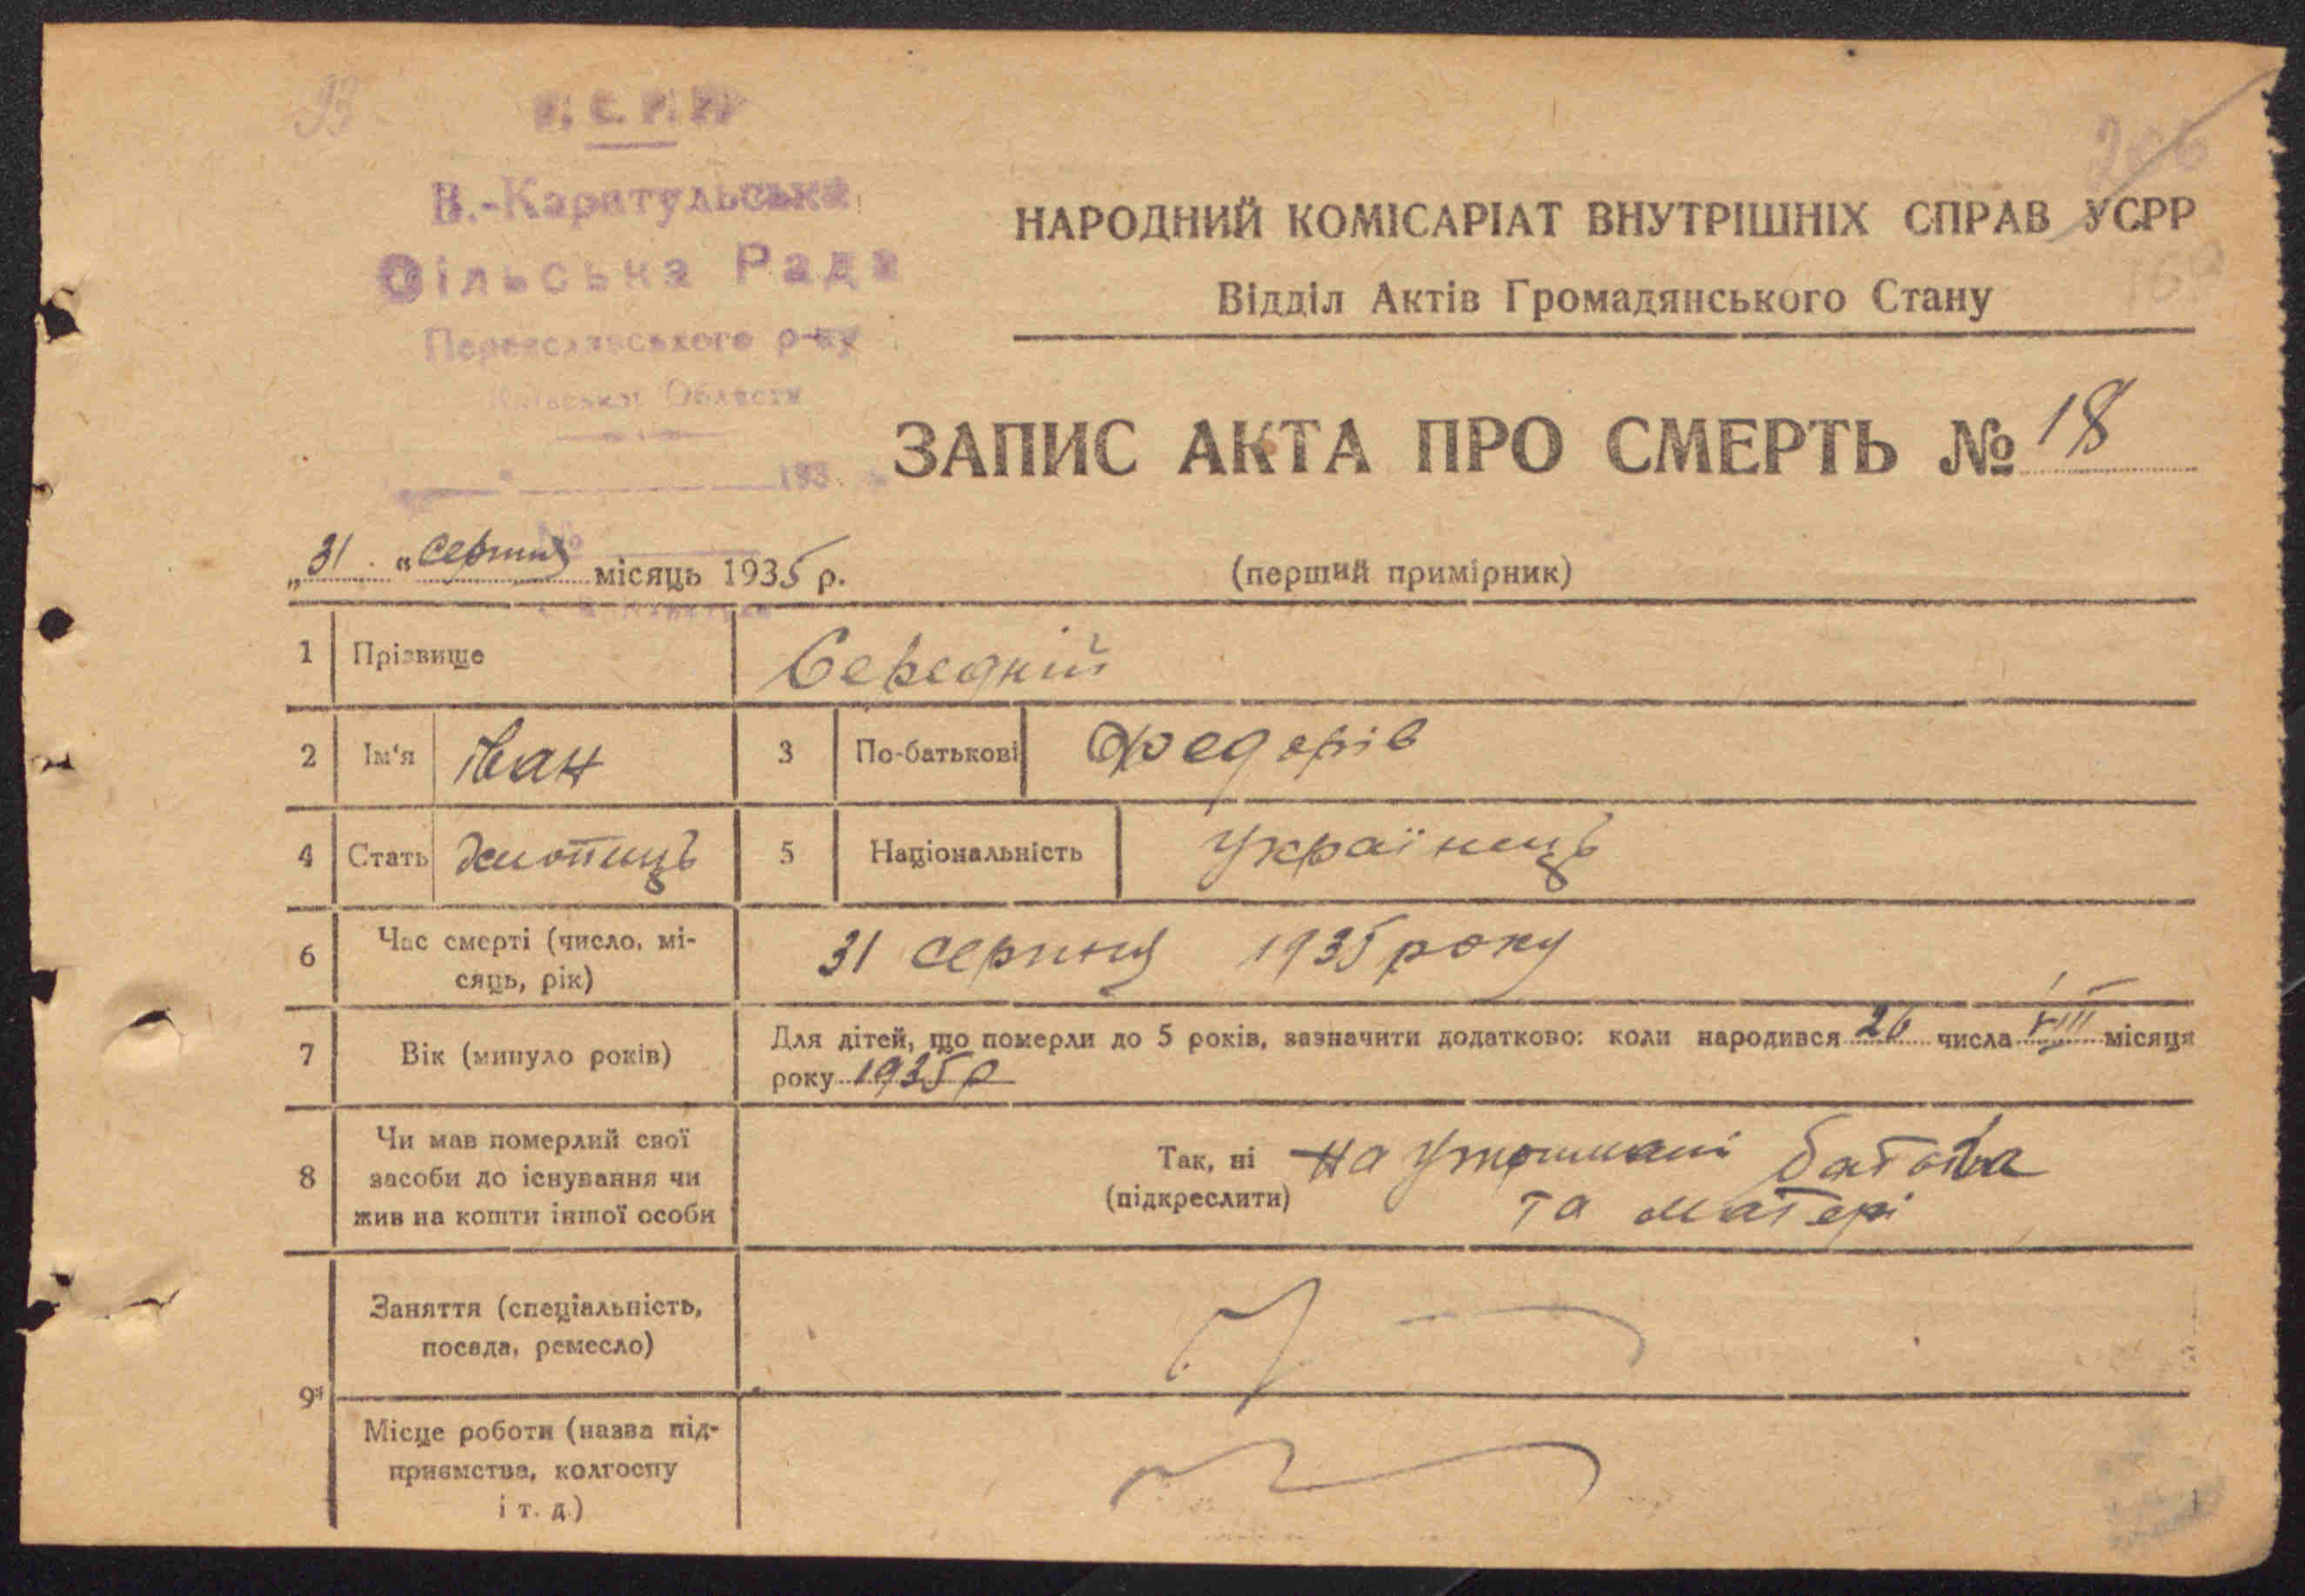 93
У.С.Р.Р.
В.-Каратульська
Сільська Рада
Переяславського р-ну
Київської Области
193
№
206
НАРОДНИЙ КОМІСАРІАТ ВНУТРІШНІХ СПРАВ УСРР
Відділ Актів Громадянського Стану
ЗАПИС АКТА ПРО СМЕРТЬ № 18
„31 “ серпня місяць 1935 р.
(перший примірник)
1 Прізвище Середній
2 Ім‘я іван 3 По-батькові Федорів
4 Стать хлопець 5 Національність Українець
6 Час смерті (число, мі-
сяць, рік) 31 серпня 1935 року
7 Вік (минуло років) Для дітей, що померли до 5 років, зазначити додатково: коли народився 26 числа VIII місяця
року 1935 р
8 Чи мав померлий свої
засоби до існування чи
жив на кошти іншої особи
Так, ні на утриманні батька
(підкреслити) та матері
9 Заняття (спеціальність,
посада, ремесло)
Місце роботи (назва під-
приємства, колгоспу
і т. д.)